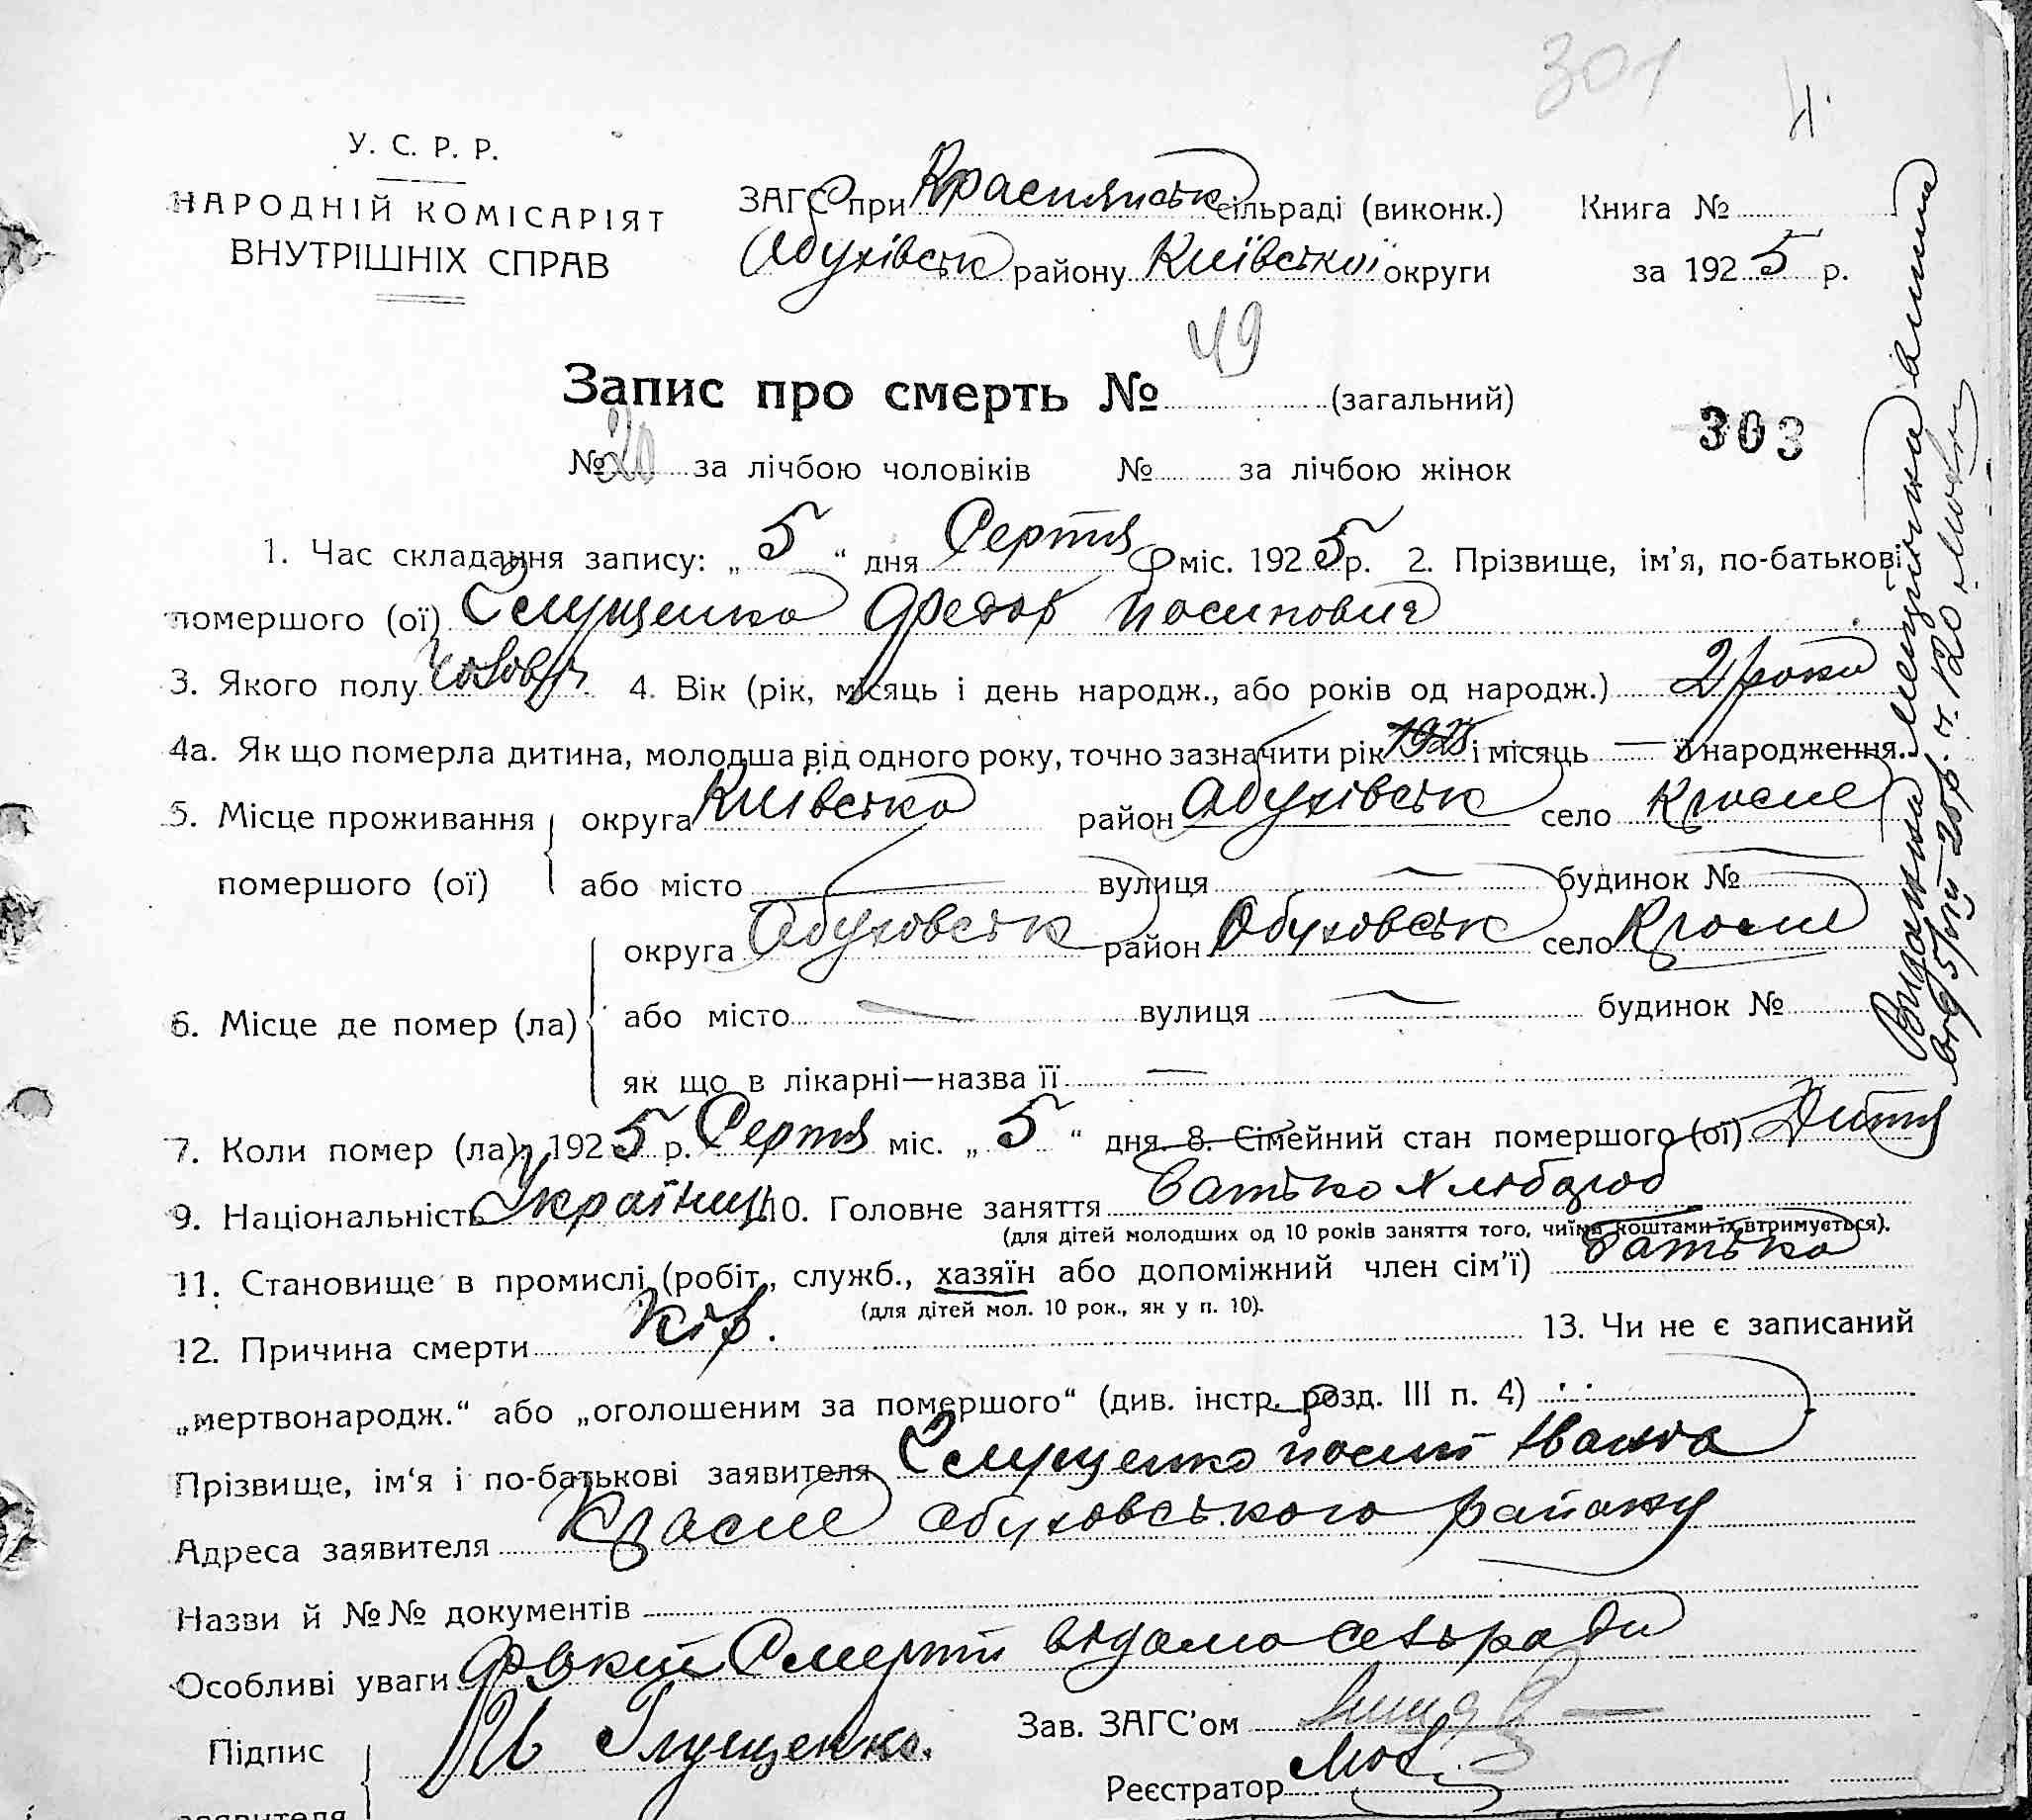 301
У. С. Р. Р.
НАРОДНІЙ КОМІСАРІЯТ
ВНУТРІШНІХ СПРАВ
ЗАГС при Краснянськ сільраді (виконк.) Книга №
Обухівськ району Київської округи за 1925 р.
Запис про смерть № 49 (загальний)
303
№ 20 за лічбою чоловіків № за лічбою жінок
1. Час складання запису: „5“ дня Серпня міс. 1925 р. 2. Прізвище, ім'я, по-батькові
помершого (ої) Глущенко Федор Йосипович
3. Якого полу Чолов. 4. Вік (рік, місяць і день народж., або років од народж.) 2 роки
4а. Як що померла дитина, молодша від одного року, точно зазначити рік 1925 і місяць — її народження.
5. Місце проживання округа Київська район Обухівськ село Красне
помершого (ої) або місто — вулиця — будинок №
округа Обуховськ район Обуховськ село Красне
6. Місце де помер (ла) або місто — вулиця — будинок №
як що в лікарні—назва її —
7. Коли помер (ла) 1925 р. Серпня міс. „5“ дня. 8. Сімейний стан помершого (ої) Дитя
9. Національність Українец 10. Головне заняття Батько хлібороб
(для дітей молодших од 10 років заняття того, чиїми коштами їх втримується).
11. Становище в промислі (робіт., служб., хазяїн або допоміжний член сім'ї) Батько
(для дітей мол. 10 рок., як у п. 10).
12. Причина смерти Кір. 13. Чи не є записаний
„мертвонародж.“ або „оголошеним за помершого“ (див. інстр. розд. III п. 4)
Прізвище, ім'я і по-батькові заявителя Глущенко Йосип
Адреса заявителя Красне Обуховського району
Назви й №№ документів
Особливі уваги Смерти відомо сельради
Підпис Глущенко. Зав. ЗАГС'ом
Реєстратор
заявителя